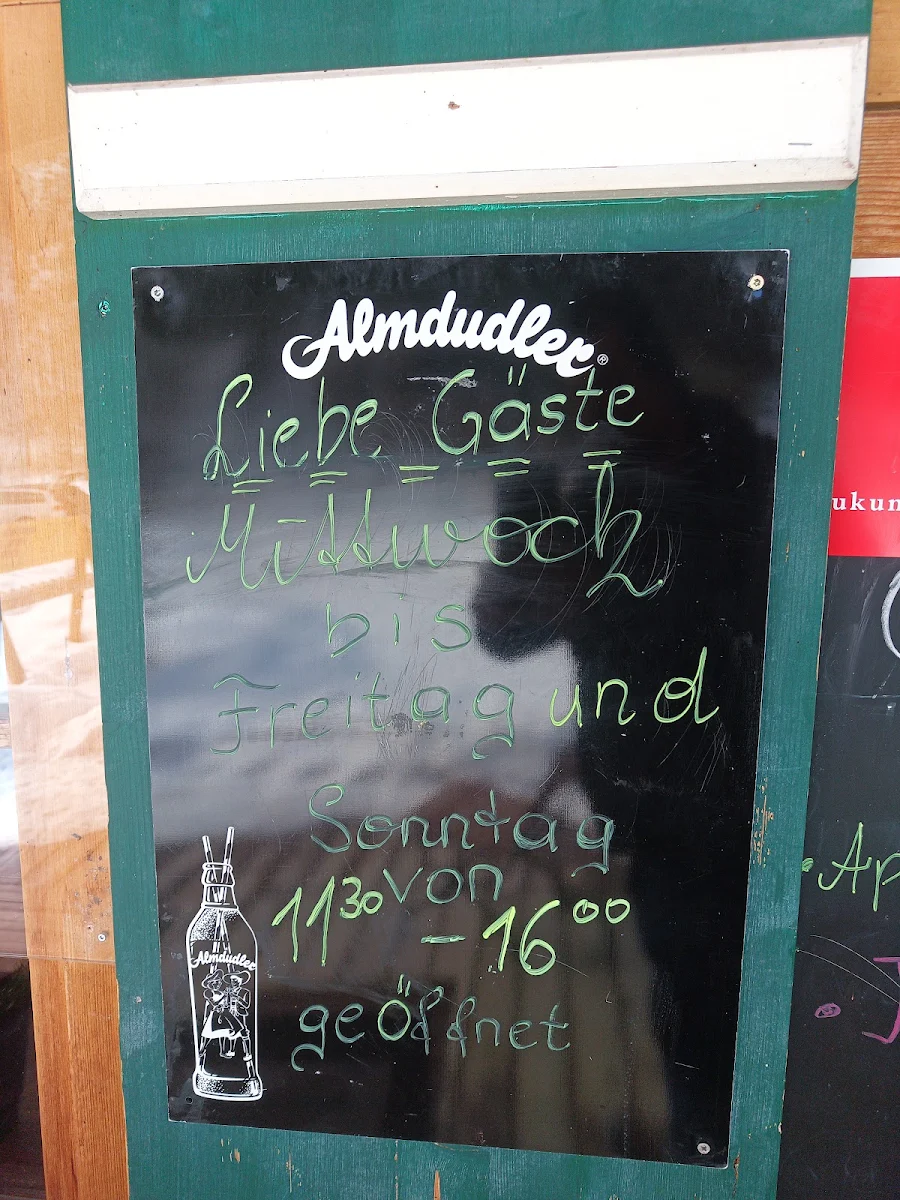 Almdudler®
Liebe Gäste
Mittwoch
bis
Freitag und
Sonntag
von
11³⁰ – 16⁰⁰
geöffnet
Almdudler
ukun
Ap